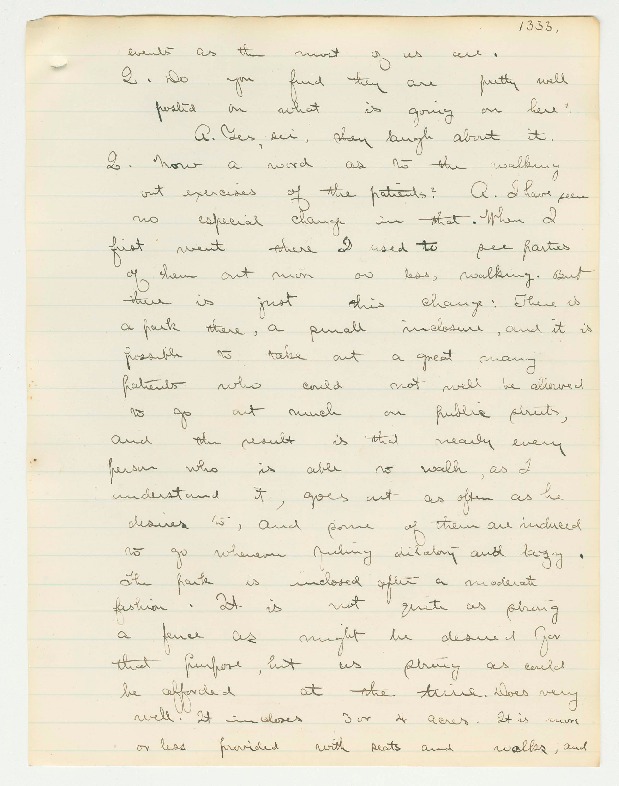 1333.
events as the most of us are.
Q. Do you find they are pretty well
posted on what is going on here?
A. Yes, sir, they laugh about it.
Q. Now a word as to the walking
out exercises of the patients? A. I have seen
no especial change in that. When I
first went there I used to see parties
of them out more or less, walking. But
there is just this change: There is
a park there, a small inclosure, and it is
possible to take out a great many
patients who could not well be allowed
to go out much on public streets,
and the result is that nearly every
person who is able to walk, as I
understand it, goes out as often as he
desires to, and some of them are induced
to go whenever feeling dilatory and lazy.
The park is inclosed after a moderate
fashion. It is not quite as strong
a fence as might be desired for
that purpose, but as strong as could
be afforded at the time. Does very
well. It incloses 3 or 4 acres. It is more
or less provided with seats and walks, and